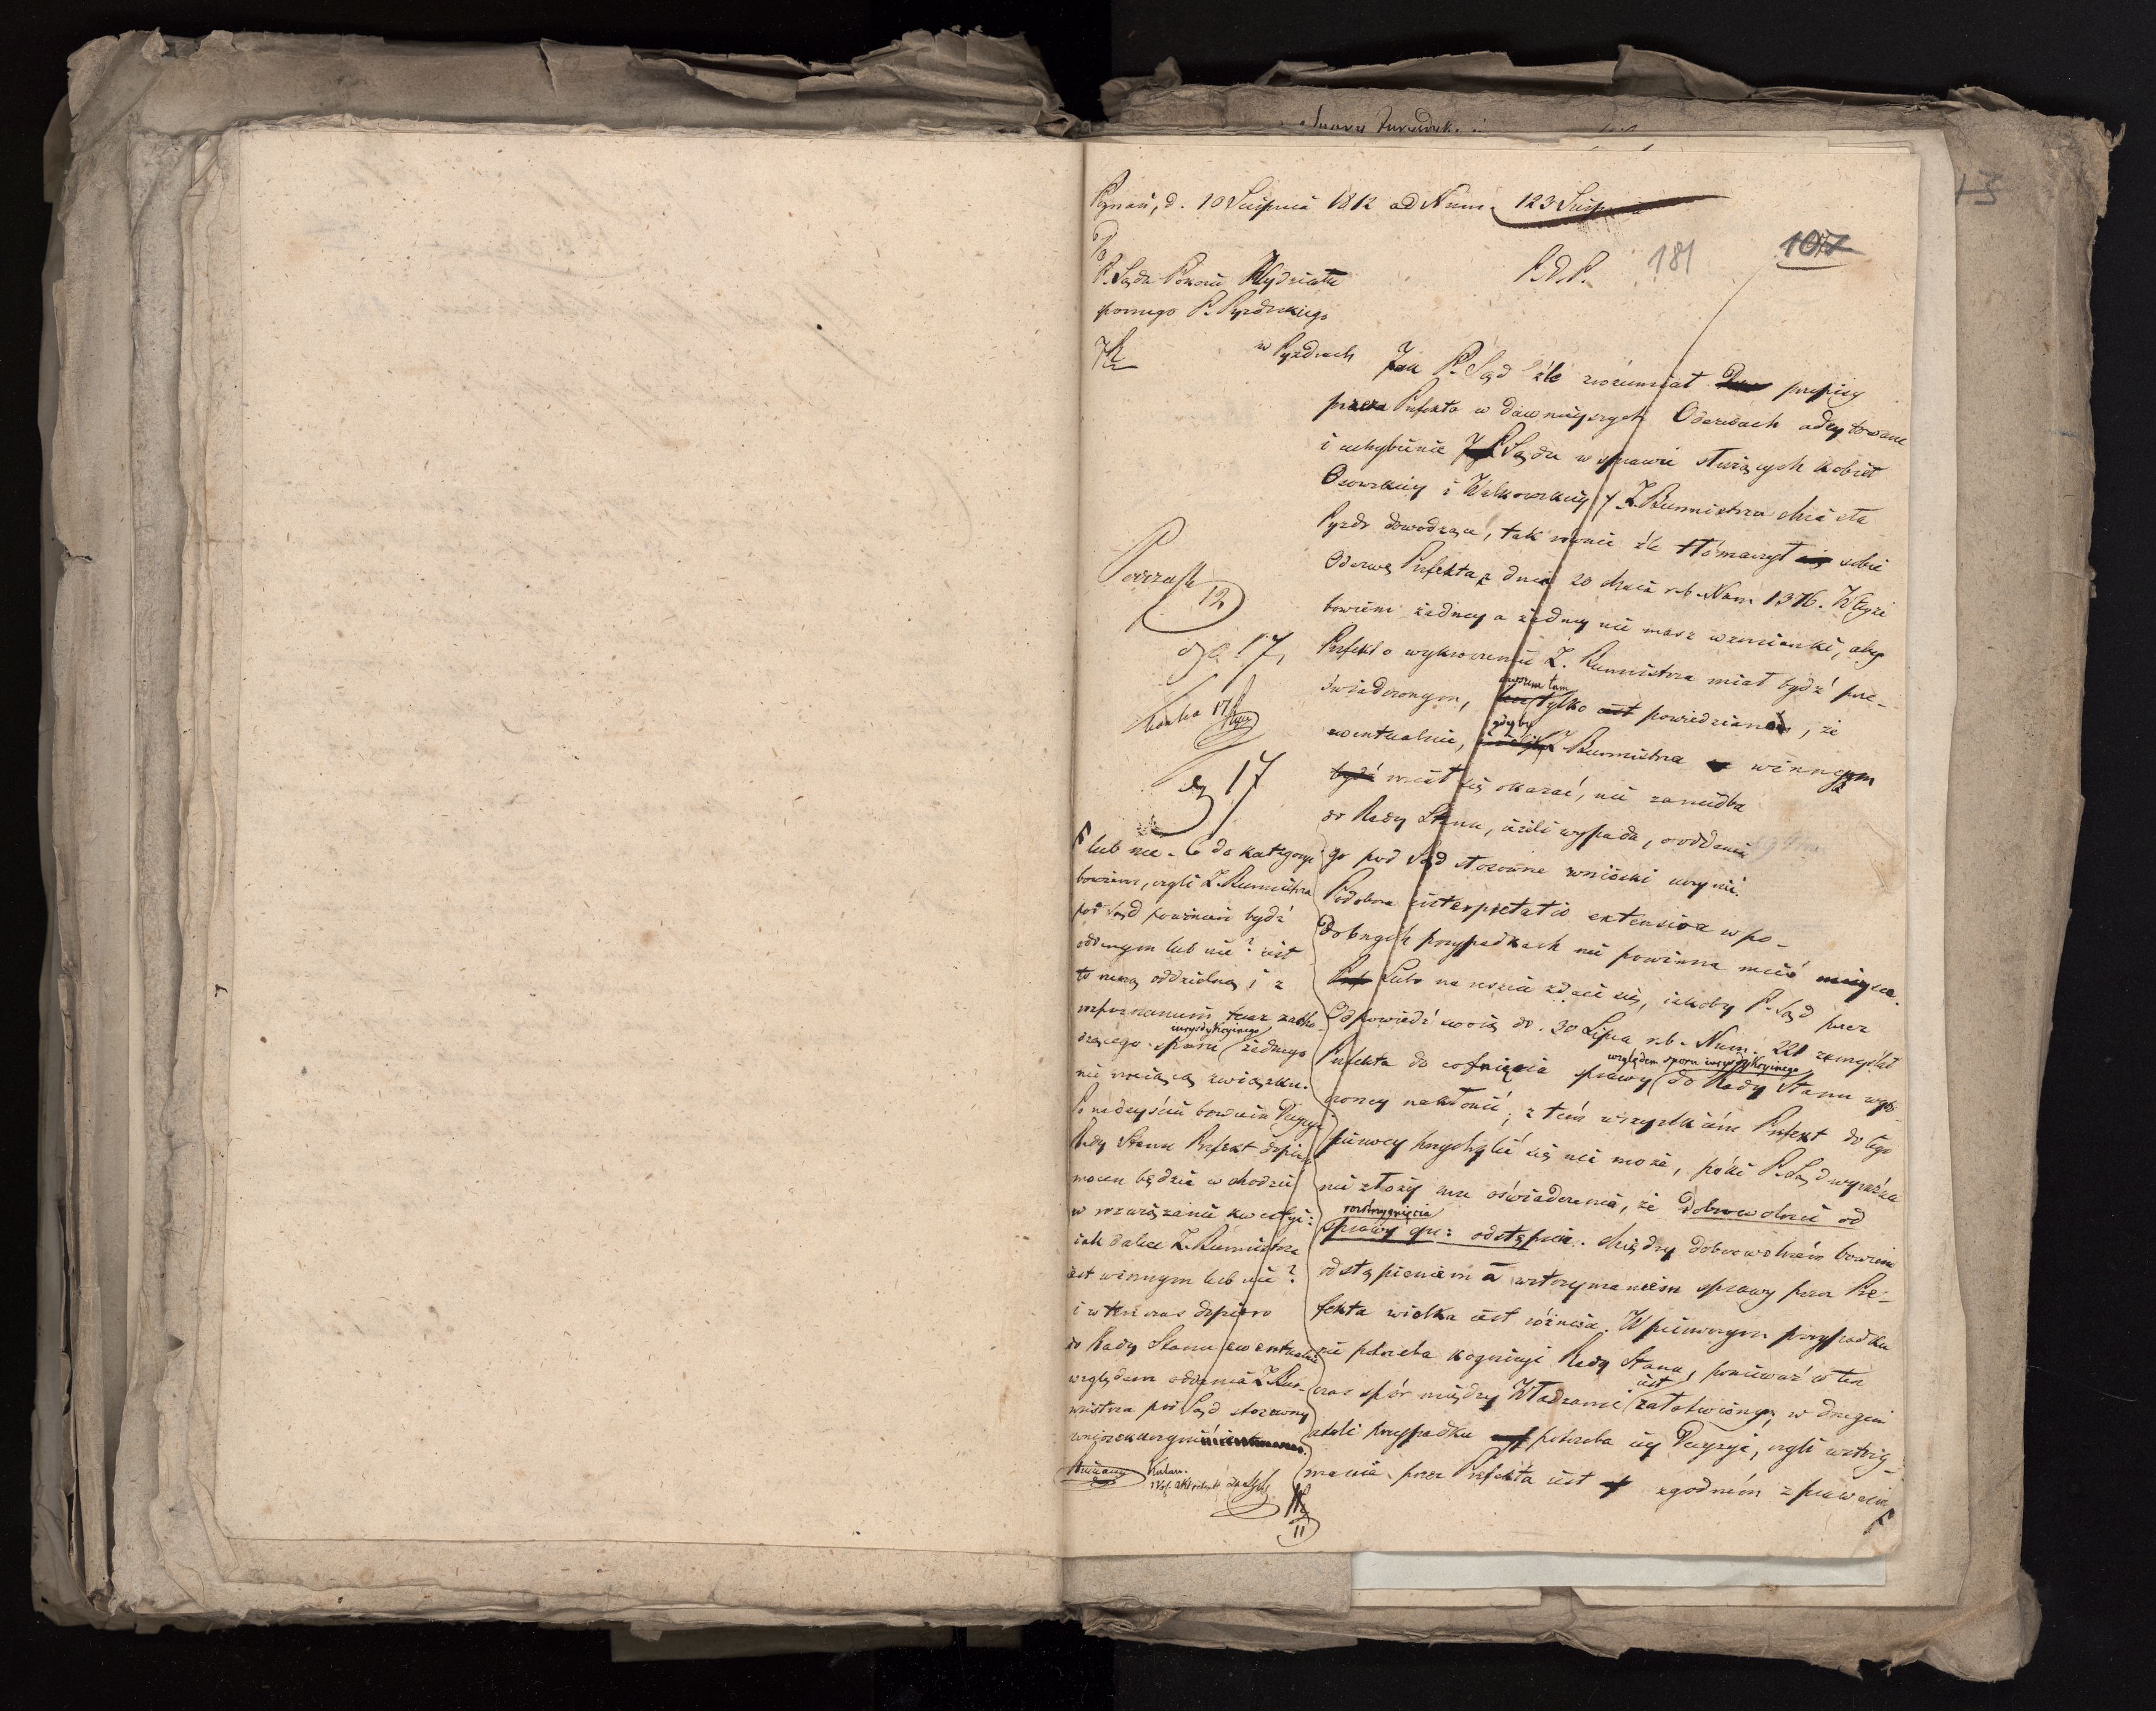 Poznań, d. 10 Sierpnia 1812 ad Num. 123 Sierp.
Do
P. Sądu Pokoiu Wydziału
spornego P. Pyzdrskiego
w Pyzdrach
P.D.P.
181
107
Jak P. Sąd źle zrozumiał przepisy
przez Prefekta w dawnieyszych Odezwach adcytowane
i uchybienie P Sądu w sprawie służących kobiet
Osowskiey i Walkowskiey / Z. Burmistrza Miasta
Pyzdr dowodzące, tak równie źle tłómaczył sobie
Odezwę Prefekta z dnia 20 Maia r.b. Num. 1376. W teyże
bowiem żadney a żadney nie masz wzmianki, aby
Prefekt o wykroczeniu Z. Burmistrza miał bydź prze-
świadczonym, owszem tam tylko powiedziano, że
ewentualnie, gdyby Z Burmistrza winnym
bydź miał się okazać, nie zaniedba
do Rady Stanu, ieżeli wypada, o oddanie
go pod Sąd stosowne wnioski uczynić.
Podobna interpretatio extensiva w po-
dobnych przypadkach nie powinna mieć mieysca.
Lubo na reszcie zdaie się, iakoby P. Sąd przez
Odpowiedź swoią d. 30 Lipca r.b. Num. 221 zamyślał
Prefekta do cofnięcia sprawy względem sporu iurysdykcyinego do Rady Stanu wyto-
czoney nakłonić; z tém wszystkiém Prefekt do tego
pierwey przychylić się nie może, póki P. Sąd wyraźnie
nie złoży mu oświadczenia, że dobrowolnie od
rozstrzygnięcia
sprawy qu: odstępuie. Między dobrowolném bowiem
odstąpieniem a wstrzymaniem sprawy przez Pre-
fekta wielka iest różnica. W pierwszym przypadku
nie potrzeba kognicyi Rady Stanu, ponieważ w ten
czas spór między Władzami iest załatwiony, w drugim
atoli przypadku potrzeba iey Decyzyi, czyli wstrzy-
manie przez Prefekta iest zgodném z prawem
12
17
17
lub nie. Co do kategoryi
bowiem, czyli Z. Burmistrz
pod Sąd powinien bydź
oddanym lub nie? iest
to rzeczą oddzielną, i z
rozpoznaniem teraz zacho-
dzącego sporu iurysdykcyinego żadnego
nie maiącą związku.
Po nadeyściu bowiem Decyzyi
Rady Stanu Prefekt dopiero
mocen będzie wchodzić
w rozwiązanie kwestyi:
iak dalece Z. Burmistrz
iest winnym lub nie?
i w ten czas dopiero
do Rady Stanu ewentualnie
względem oddania Z. Bur-
mistrza pod Sąd stosowny
wniosek uczynić
11